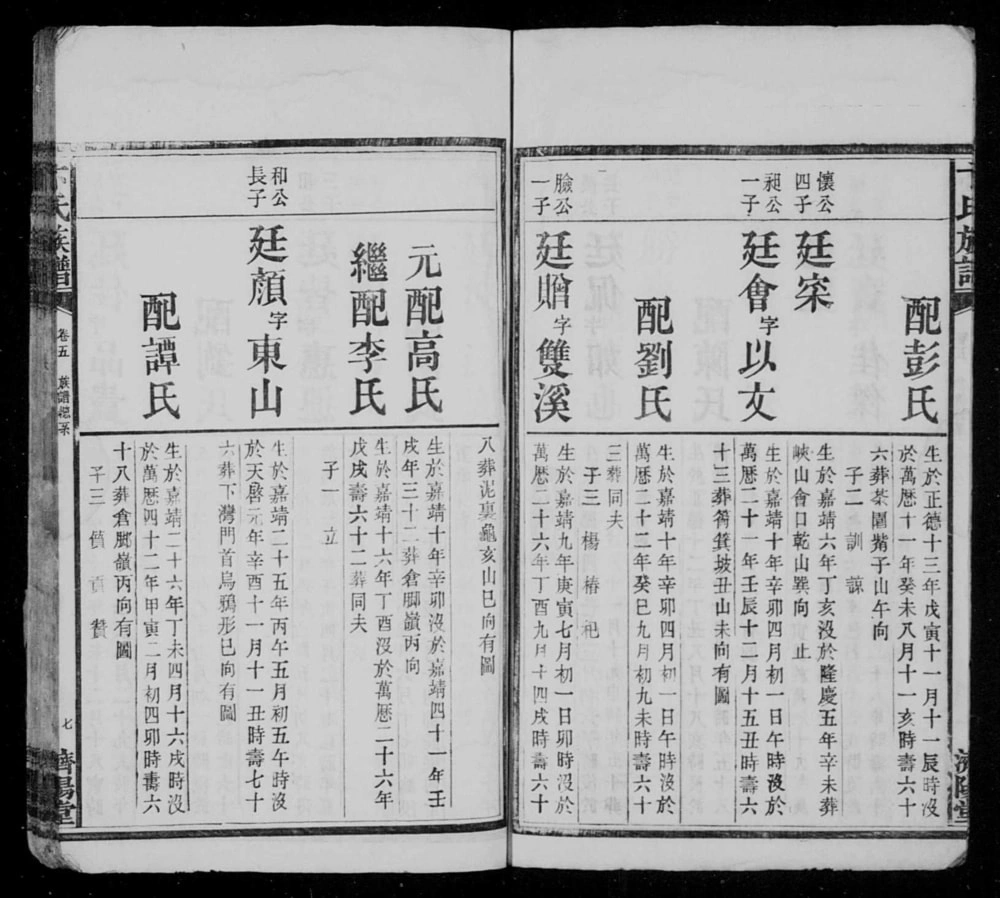 氏族譜
濟陽堂
配彭氏
生於正德十三年戊寅十一月十一辰時沒
於萬曆十一年癸未八月十一亥時壽六十
六葬茶園觜子山午向
子二 訓 諒
懷公
四子
廷寀
生於嘉靖六年丁亥沒於隆慶五年辛未葬
峽山會口乾山巽向 止
昶公
一子
廷會字以文
生於嘉靖十年辛卯四月初一日午時沒於
萬曆二十一年壬辰十二月十五丑時壽六
十三葬筲箕坡丑山未向有圖
配劉氏
生於嘉靖十年辛卯四月初一日午時沒於
萬曆二十三年癸巳九月初九未時壽六十
三葬同夫
子三 楊 椿 祀
臉公
一子
廷贈字雙溪
生於嘉靖九年庚寅七月初一日卯時沒於
萬曆二十六年丁酉九月十四戌時壽六十
八葬泥裏龜亥山巳向有圖
元配高氏
生於嘉靖十年辛卯沒於嘉靖四十一年壬
戌年三十二葬倉脚嶺丙向
繼配李氏
生於嘉靖十六年丁酉沒於萬曆二十六年
戊戌壽六十二葬同夫
子一 立
和公
長子
廷顏字東山
生於嘉靖二十五年丙午五月初五午時沒
於天啓元年辛酉十一月十一丑時壽七十
六葬下灣門首烏鴉形巳向有圖
配譚氏
生於嘉靖二十六年丁未四月十六戌時沒
於萬曆四十二年甲寅二月初四卯時壽六
十八葬倉脚嶺丙向有圖
子三 貢 贊
氏族譜
卷五
族譜總系
七
濟陽堂